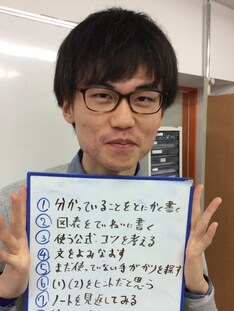 ① 分かっていることをとにかく書く
② 図表をていねいに書く
③ 使う公式、コツを考える
④ 文をよみなおす
⑤ まだ使っていない手がかりを探す
⑥ (1)(2)をヒントだと思う
⑦ ノートを見返してみる